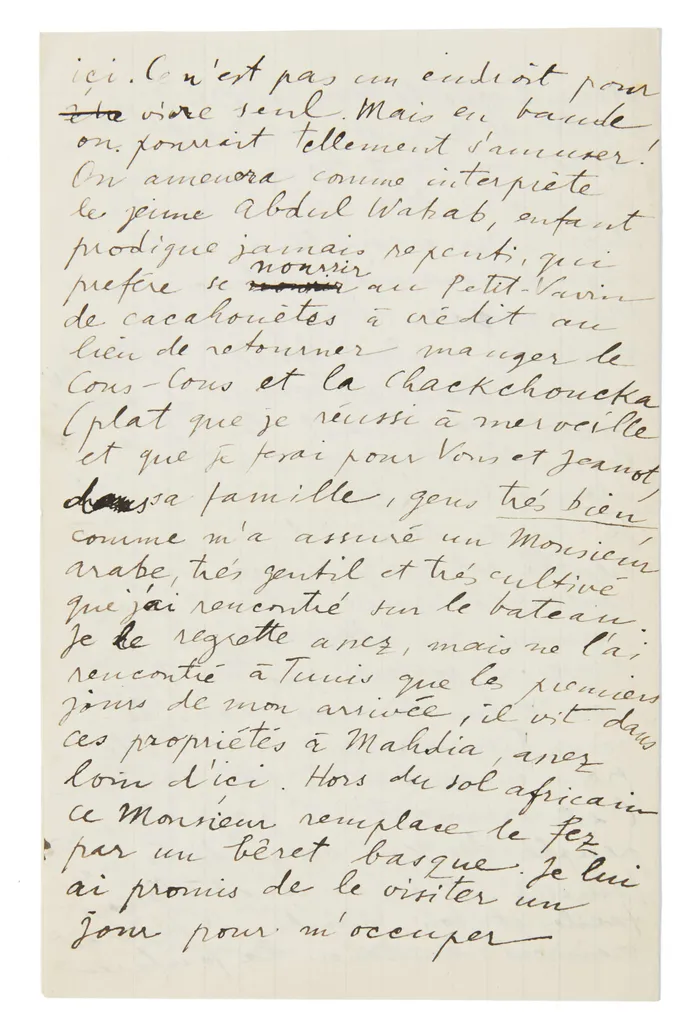 ici. Ce n'est pas un endroit pour
vivre seul. Mais en bande
on pourrait tellement s'amuser!
On amenera comme interprète
le jeune Abdul Wahab, enfant
prodigue jamais repenti, qui
nourrir
préfère se au Petit-Vavin
de cacahouètes à crédit au
lieu de retourner manger le
Cous-Cous et la Chackchoucka
(plat que je réussi à merveille
et que je ferai pour Vous et Jeanot)
dans sa famille, gens très bien
comme m'a assuré un Monsieur
arabe, très gentil et très cultivé
que j'ai rencontré sur le bateau.
Je le regrette assez, mais ne l'ai
rencontré à Tunis que les premiers
jours de mon arrivée, il vit dans
ces propriétés à Mahdia, assez
loin d'ici. Hors du sol africain
ce Monsieur remplace le Fez
par un bêret basque. Je lui
ai promis de le visiter un
jour pour m'occuper